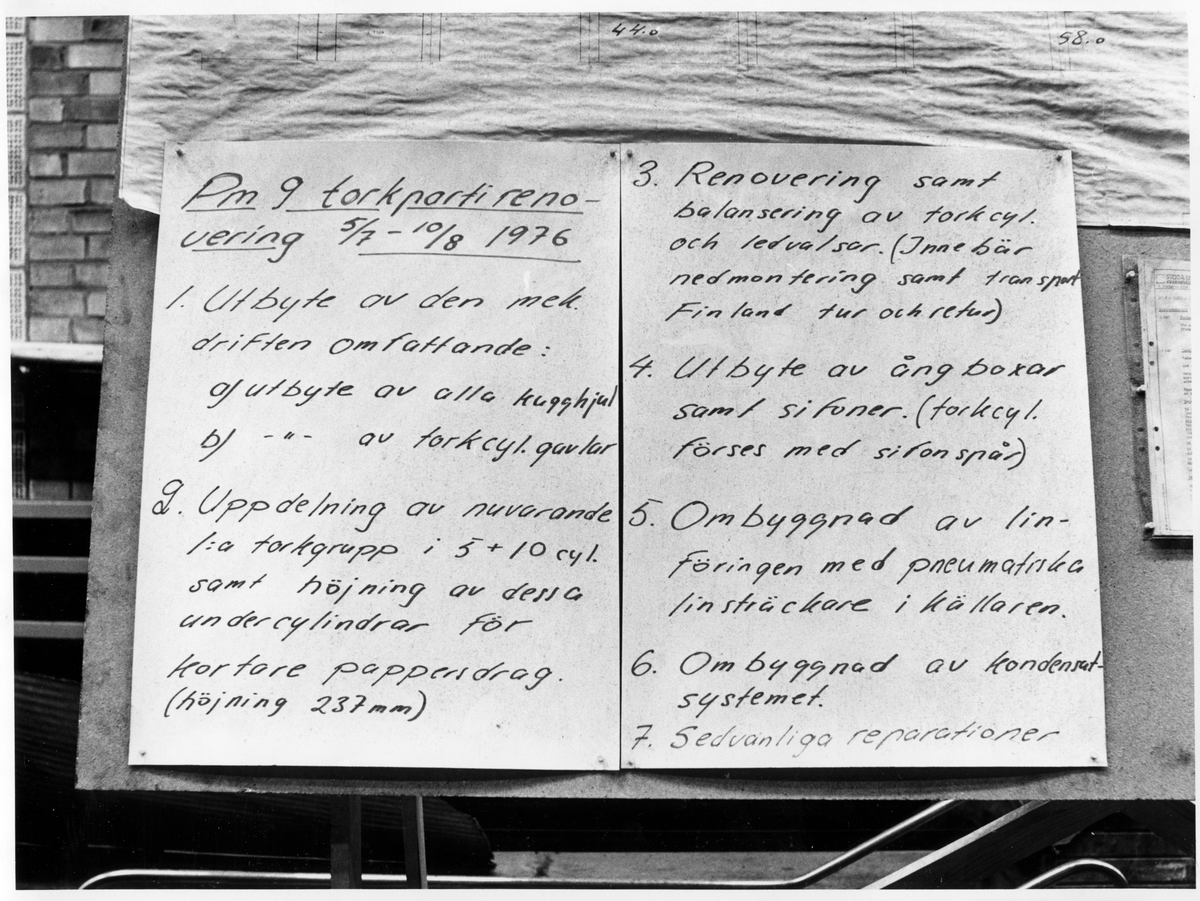 44.0
58.0
Pm 9 torkpartireno-
vering 5/7 - 10/8 1976
1. Utbyte av den mek.
driften omfattande:
a) utbyte av alla kugghjul
b) -"- av torkcyl. gavlar
2. Uppdelning av nuvarande
1:a torkgrupp i 5 + 10 cyl.
samt höjning av dessa
undercylindrar för
kortare pappersdrag.
(höjning 237 mm)
3. Renovering samt
balansering av torkcyl.
och ledvalsar. (Innebär
nedmontering samt transport
Finland tur och retur)
4. Utbyte av ångboxar
samt sifoner. (torkcyl.
förses med sifonspår)
5. Ombyggnad av lin-
föringen med pneumatiska
linsträckare i källaren.
6. Ombyggnad av kondensat-
systemet.
7. Sedvanliga reparationer